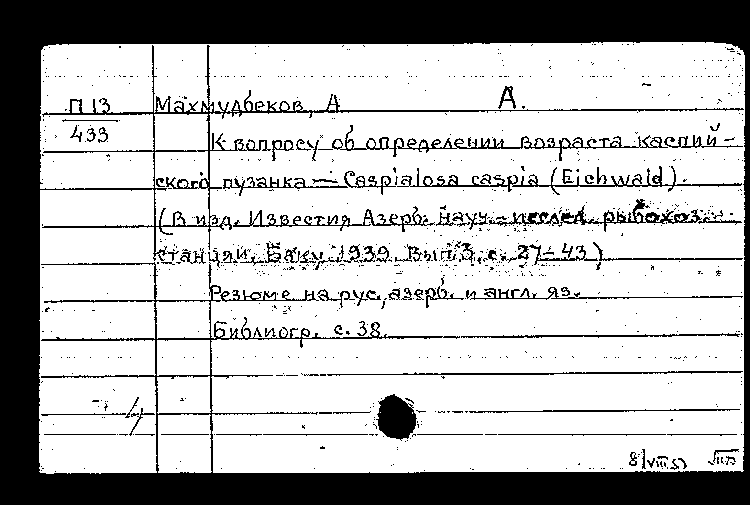 П 13
433
Махмудбеков, А. А.
К вопросу об определении возраста каспий-
ского пузанка — Caspialosa caspia (Eichwald).
(В изд. Известия Азерб. науч.-исслед. рыбохоз.
станции. Баку. 1939. Вып. 3, с. 27-43)
Резюме на рус., азерб. и англ. яз.
Библиогр. с. 38.
4
8/VIII